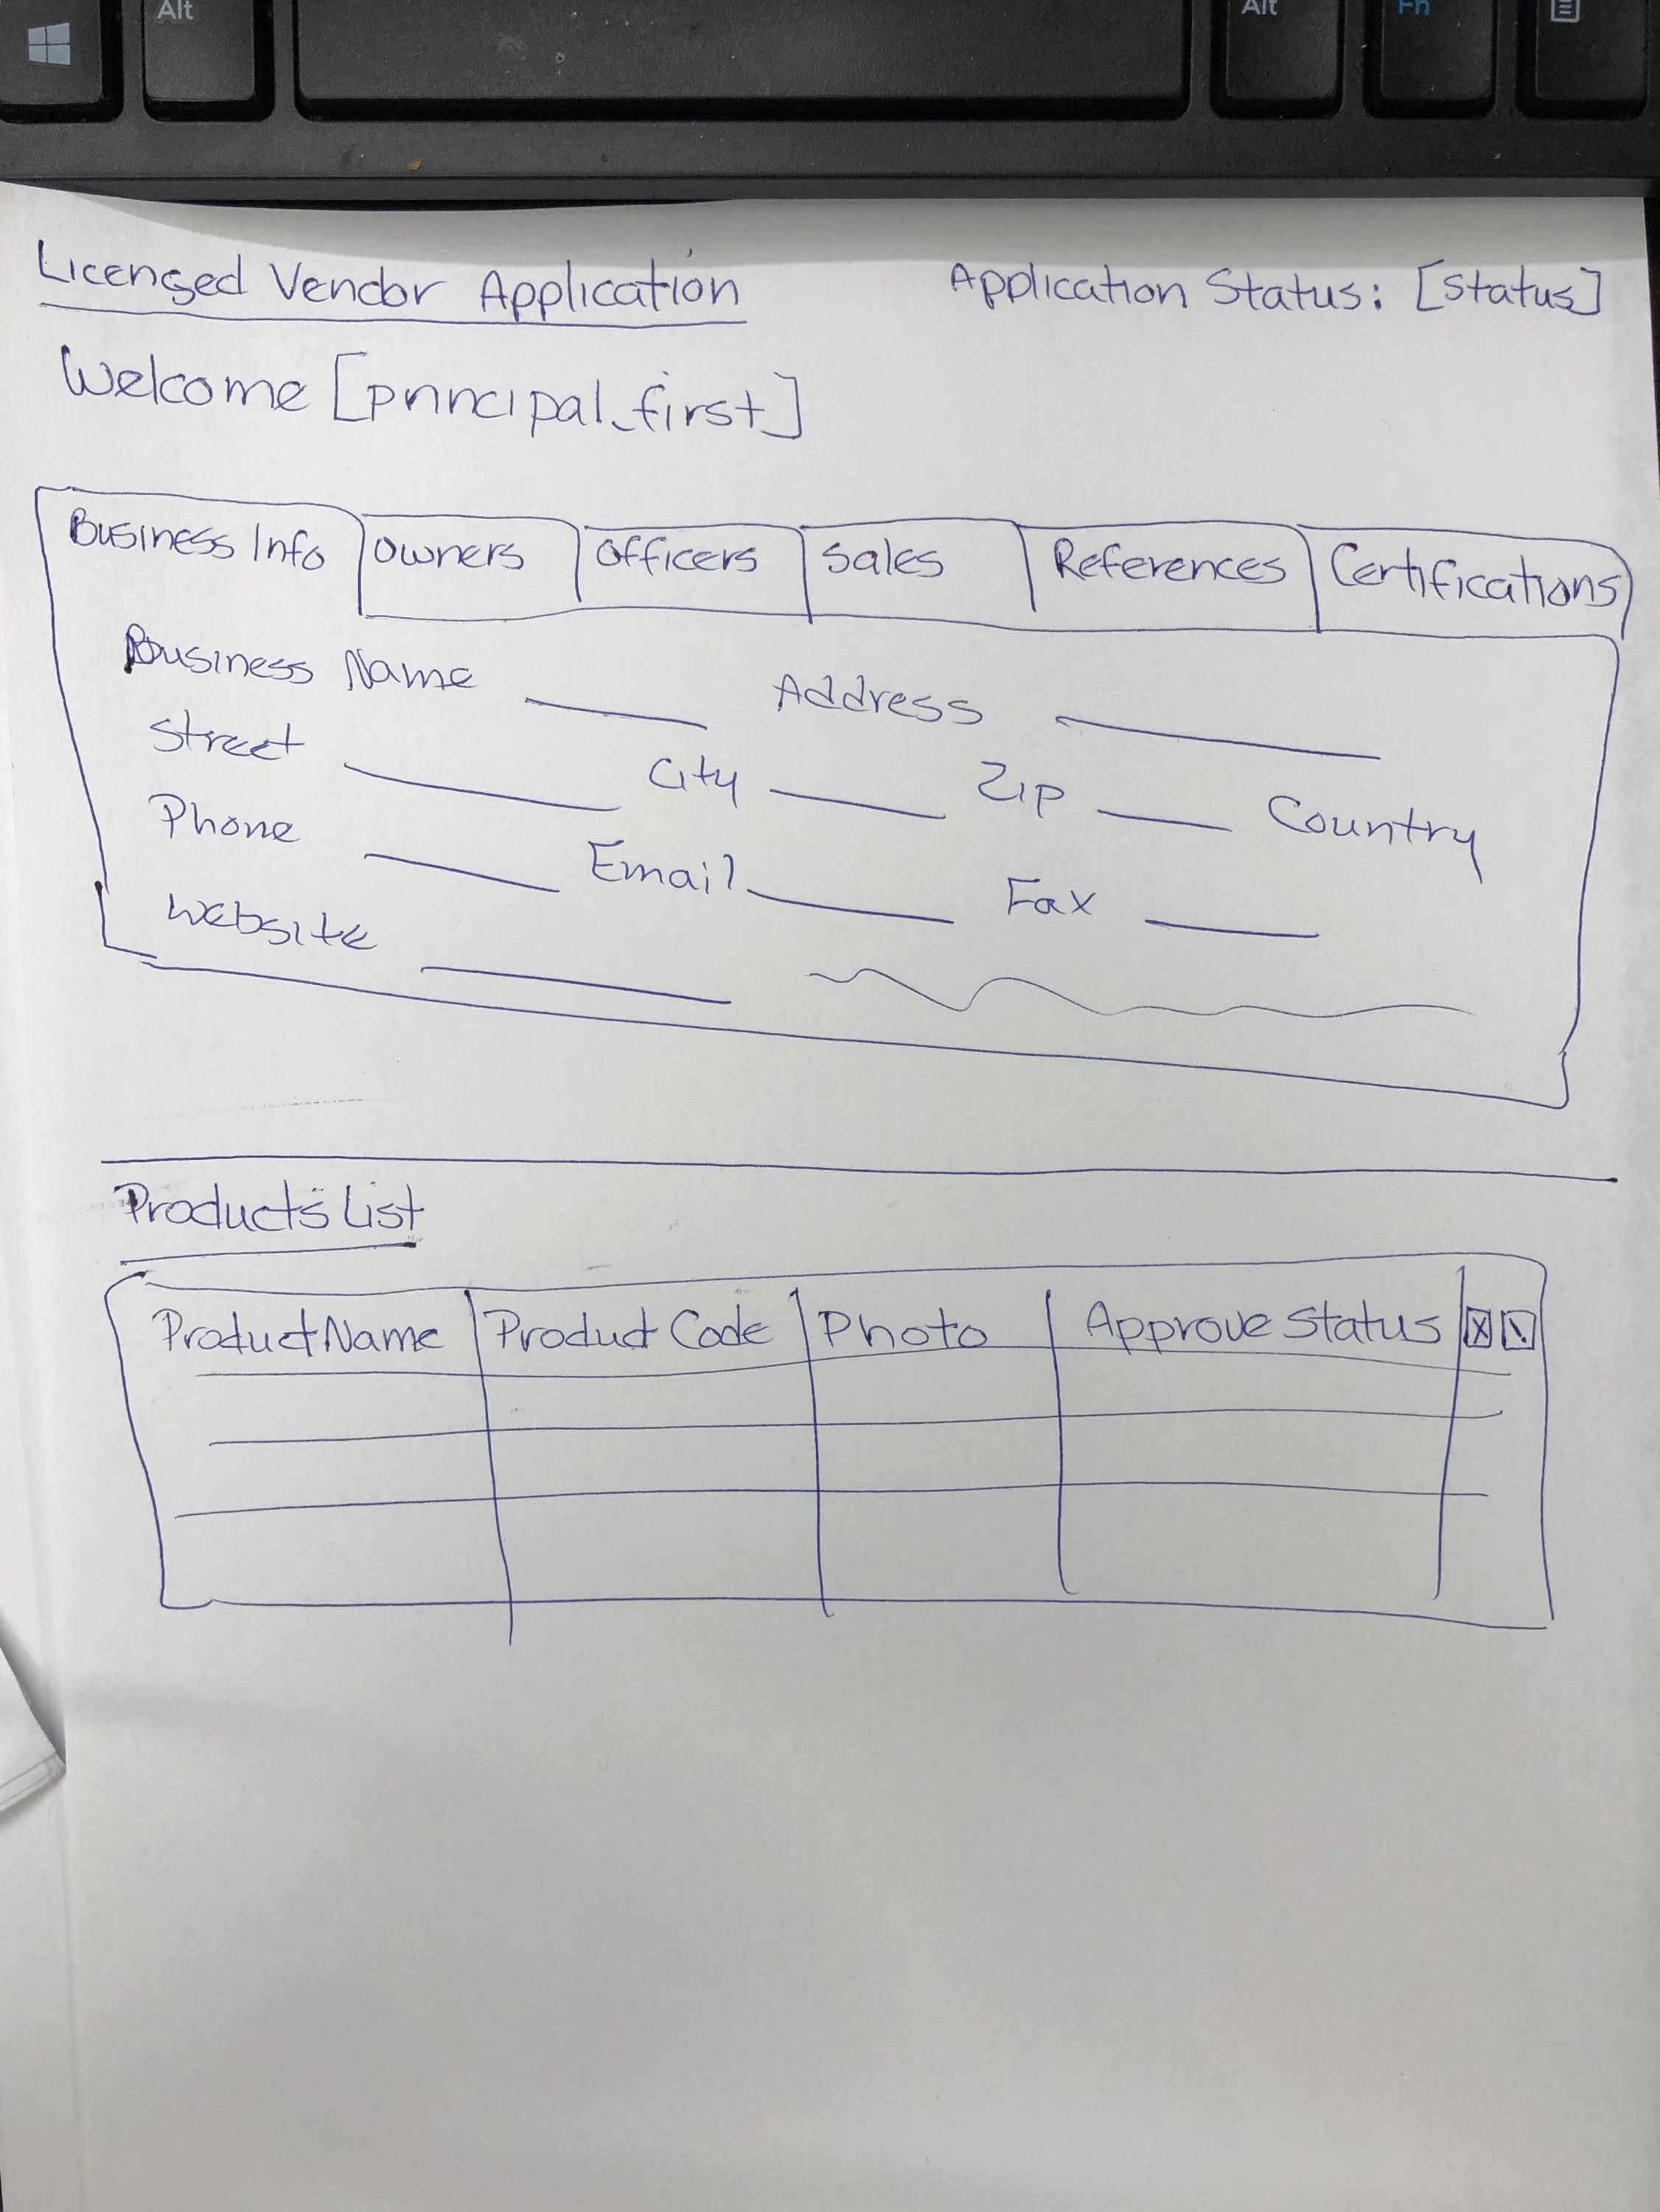 Alt
Alt
Fn
Licensed Vendor Application
Application Status: [Status]
Welcome [principal_first]
Business Info
Owners
Officers
Sales
References
Certifications
Business Name
Address
Street
City
Zip
Country
Phone
Email
Fax
Website
Products List
Product Name
Product Code
Photo
Approve Status
X